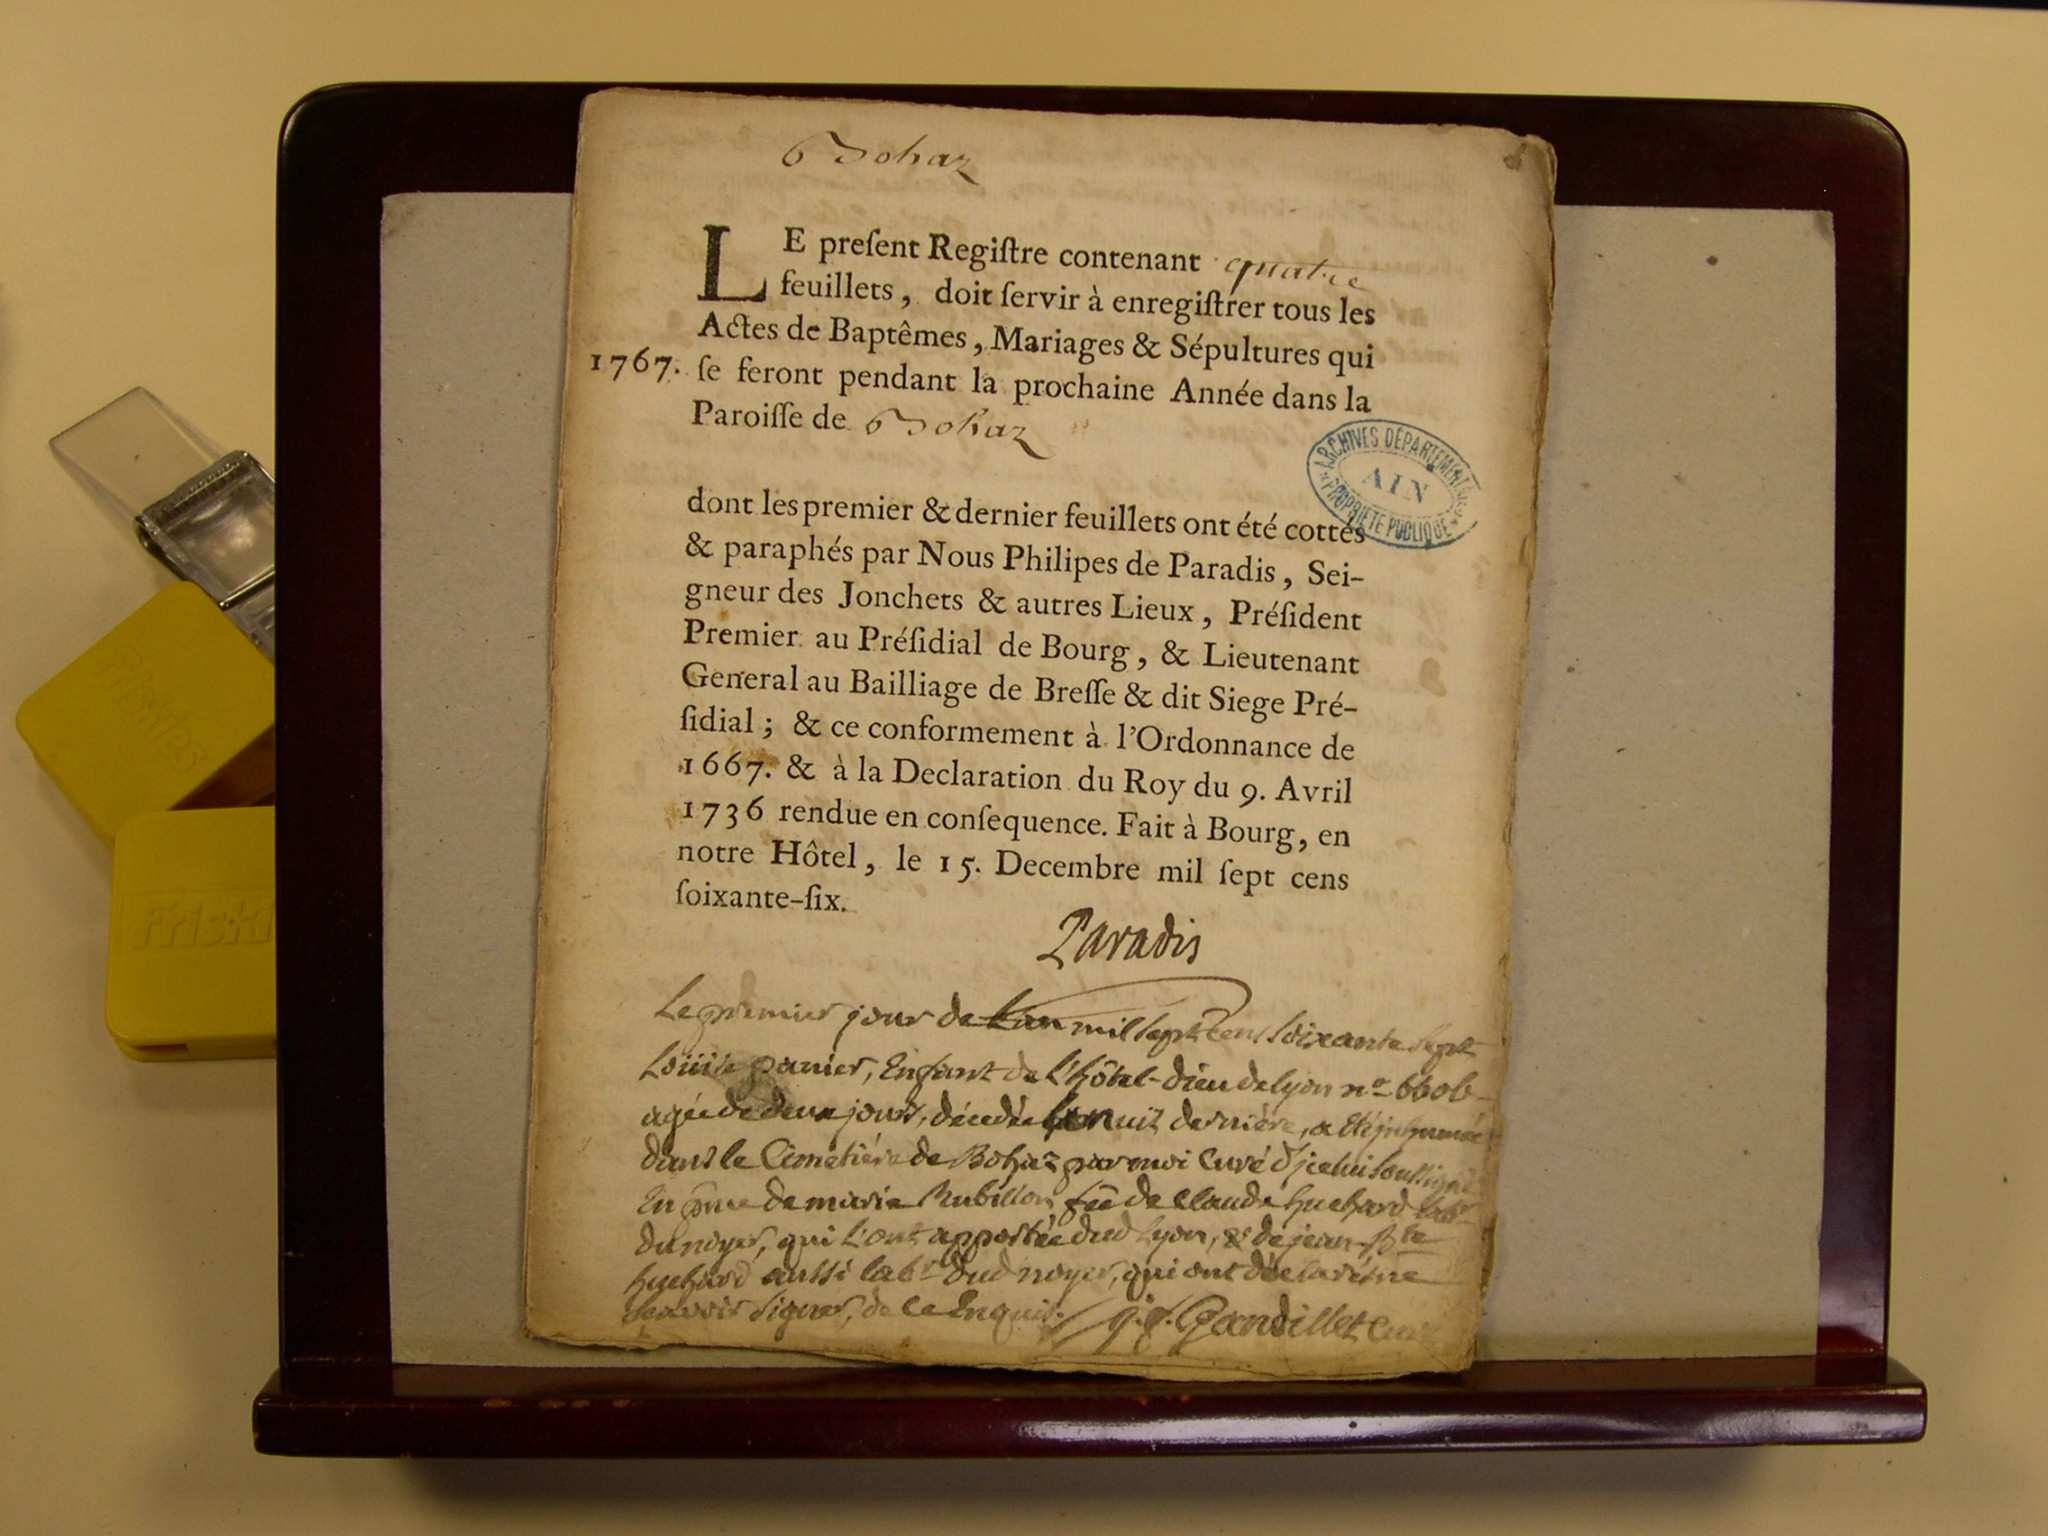 Bohaz
LE preſent Regiſtre contenant quatre
feuillets, doit ſervir à enregiſtrer tous les
Actes de Baptêmes, Mariages & Sépultures qui
1767. ſe feront pendant la prochaine Année dans la
Paroiſſe de Bohaz
ARCHIVES DÉPARTEMENTALES
AIN
PROPRIÉTÉ PUBLIQUE
dont les premier & dernier feuillets ont été cottés
& paraphés par Nous Philipes de Paradis, Sei-
gneur des Jonchets & autres Lieux, Préſident
Premier au Préſidial de Bourg, & Lieutenant
General au Bailliage de Breſſe & dit Siege Pré-
ſidial; & ce conformement à l'Ordonnance de
1667. & à la Declaration du Roy du 9. Avril
1736 rendue en conſequence. Fait à Bourg, en
notre Hôtel, le 15. Decembre mil ſept cens
ſoixante-ſix.
Paradis
Le premier jour de L'an mil sept cens soixante sept
Loüise panier, Enfant de L'hôtel-dieu de lyon n°
agée de deux jours, décedée La nuit derniére, a Eté inhumée
dans le Cimetiére de Bohaz par moi Curé d'icelui soussigné
En pñce de marie Rubillon, fẽe de claude huchard labr
du noyer, qui L'ont apportée dud Lyon, & de jean-Bte
huchard aussi labr dud noyer, qui ont déclaré ne
savoir signer, de ce Enquis. j. j. Gandillet Curé
Friskies
Friski